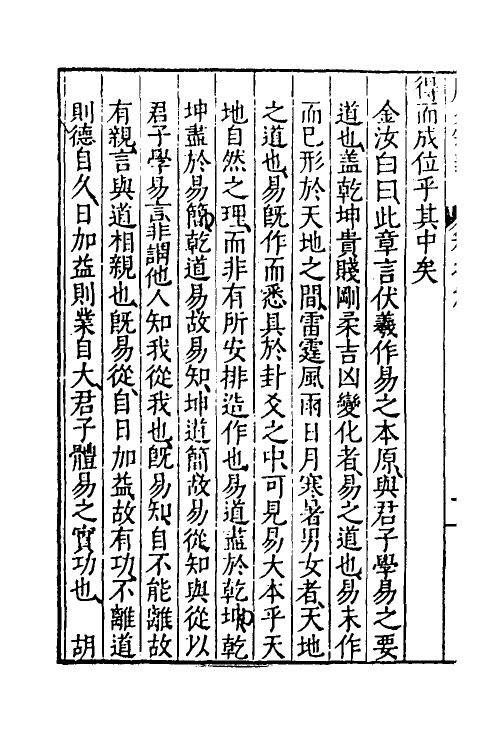 得而成位乎其中矣
金汝白曰此章言伏羲作易之本原與君子學易之要
道也蓋乾坤貴賤剛柔吉凶變化者易之道也易未作
而已形於天地之間雷霆風雨日月寒暑男女者天地
之道也易旣作而悉具於卦爻之中可見易大本乎天
地自然之理而非有所安排造作也易道藎於乾坤乾
坤盡於易簡乾道易故易知坤道簡故易從知與從以
君子學易言非謂他人知我從我也旣易知自不能離故
有親言與道相親也旣易從自日加益故有功不離道
則德自久日加益則業自大君子體易之實功也 胡